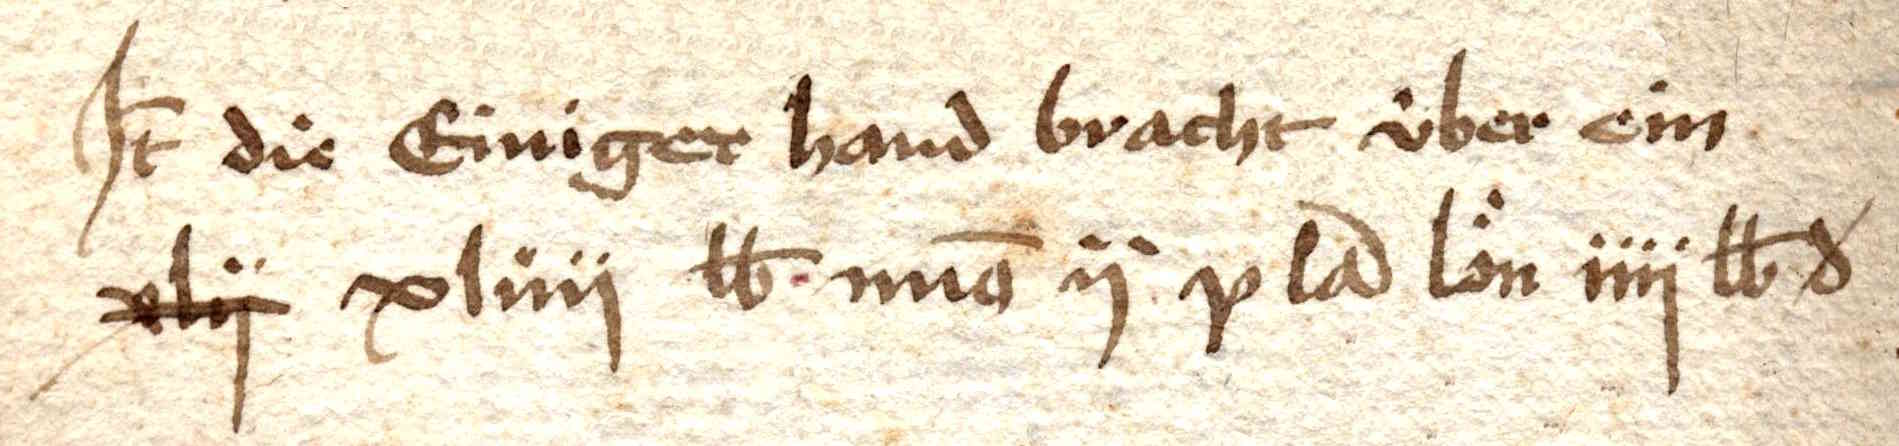 It die Einiger hand bracht über ein
xlij xliiij lb mno ij p lad lön iiij lb d